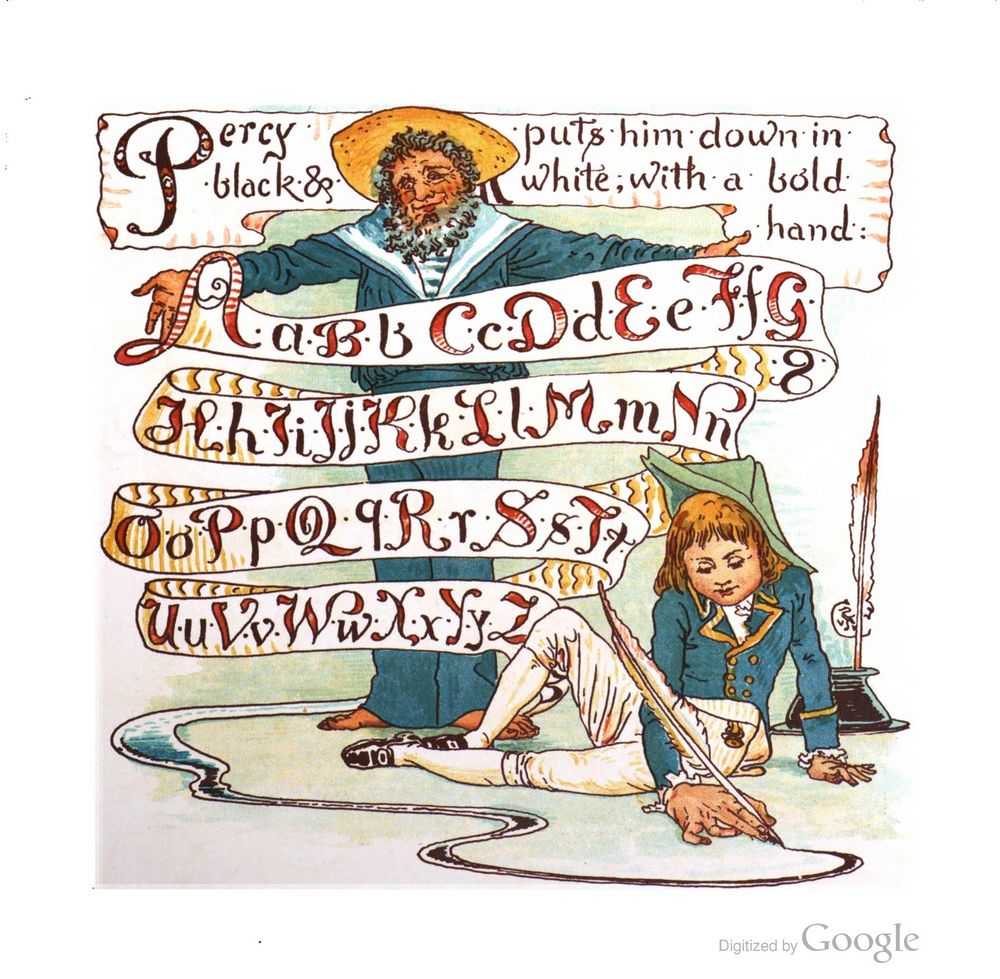 Percy puts him down in
black & white, with a bold
hand:
A a B b C c D d E e F f G
g
H h I i J j K k L l M m N n
O o P p Q q R r S s T t
U u V v W w X x Y y Z
Digitized by Google